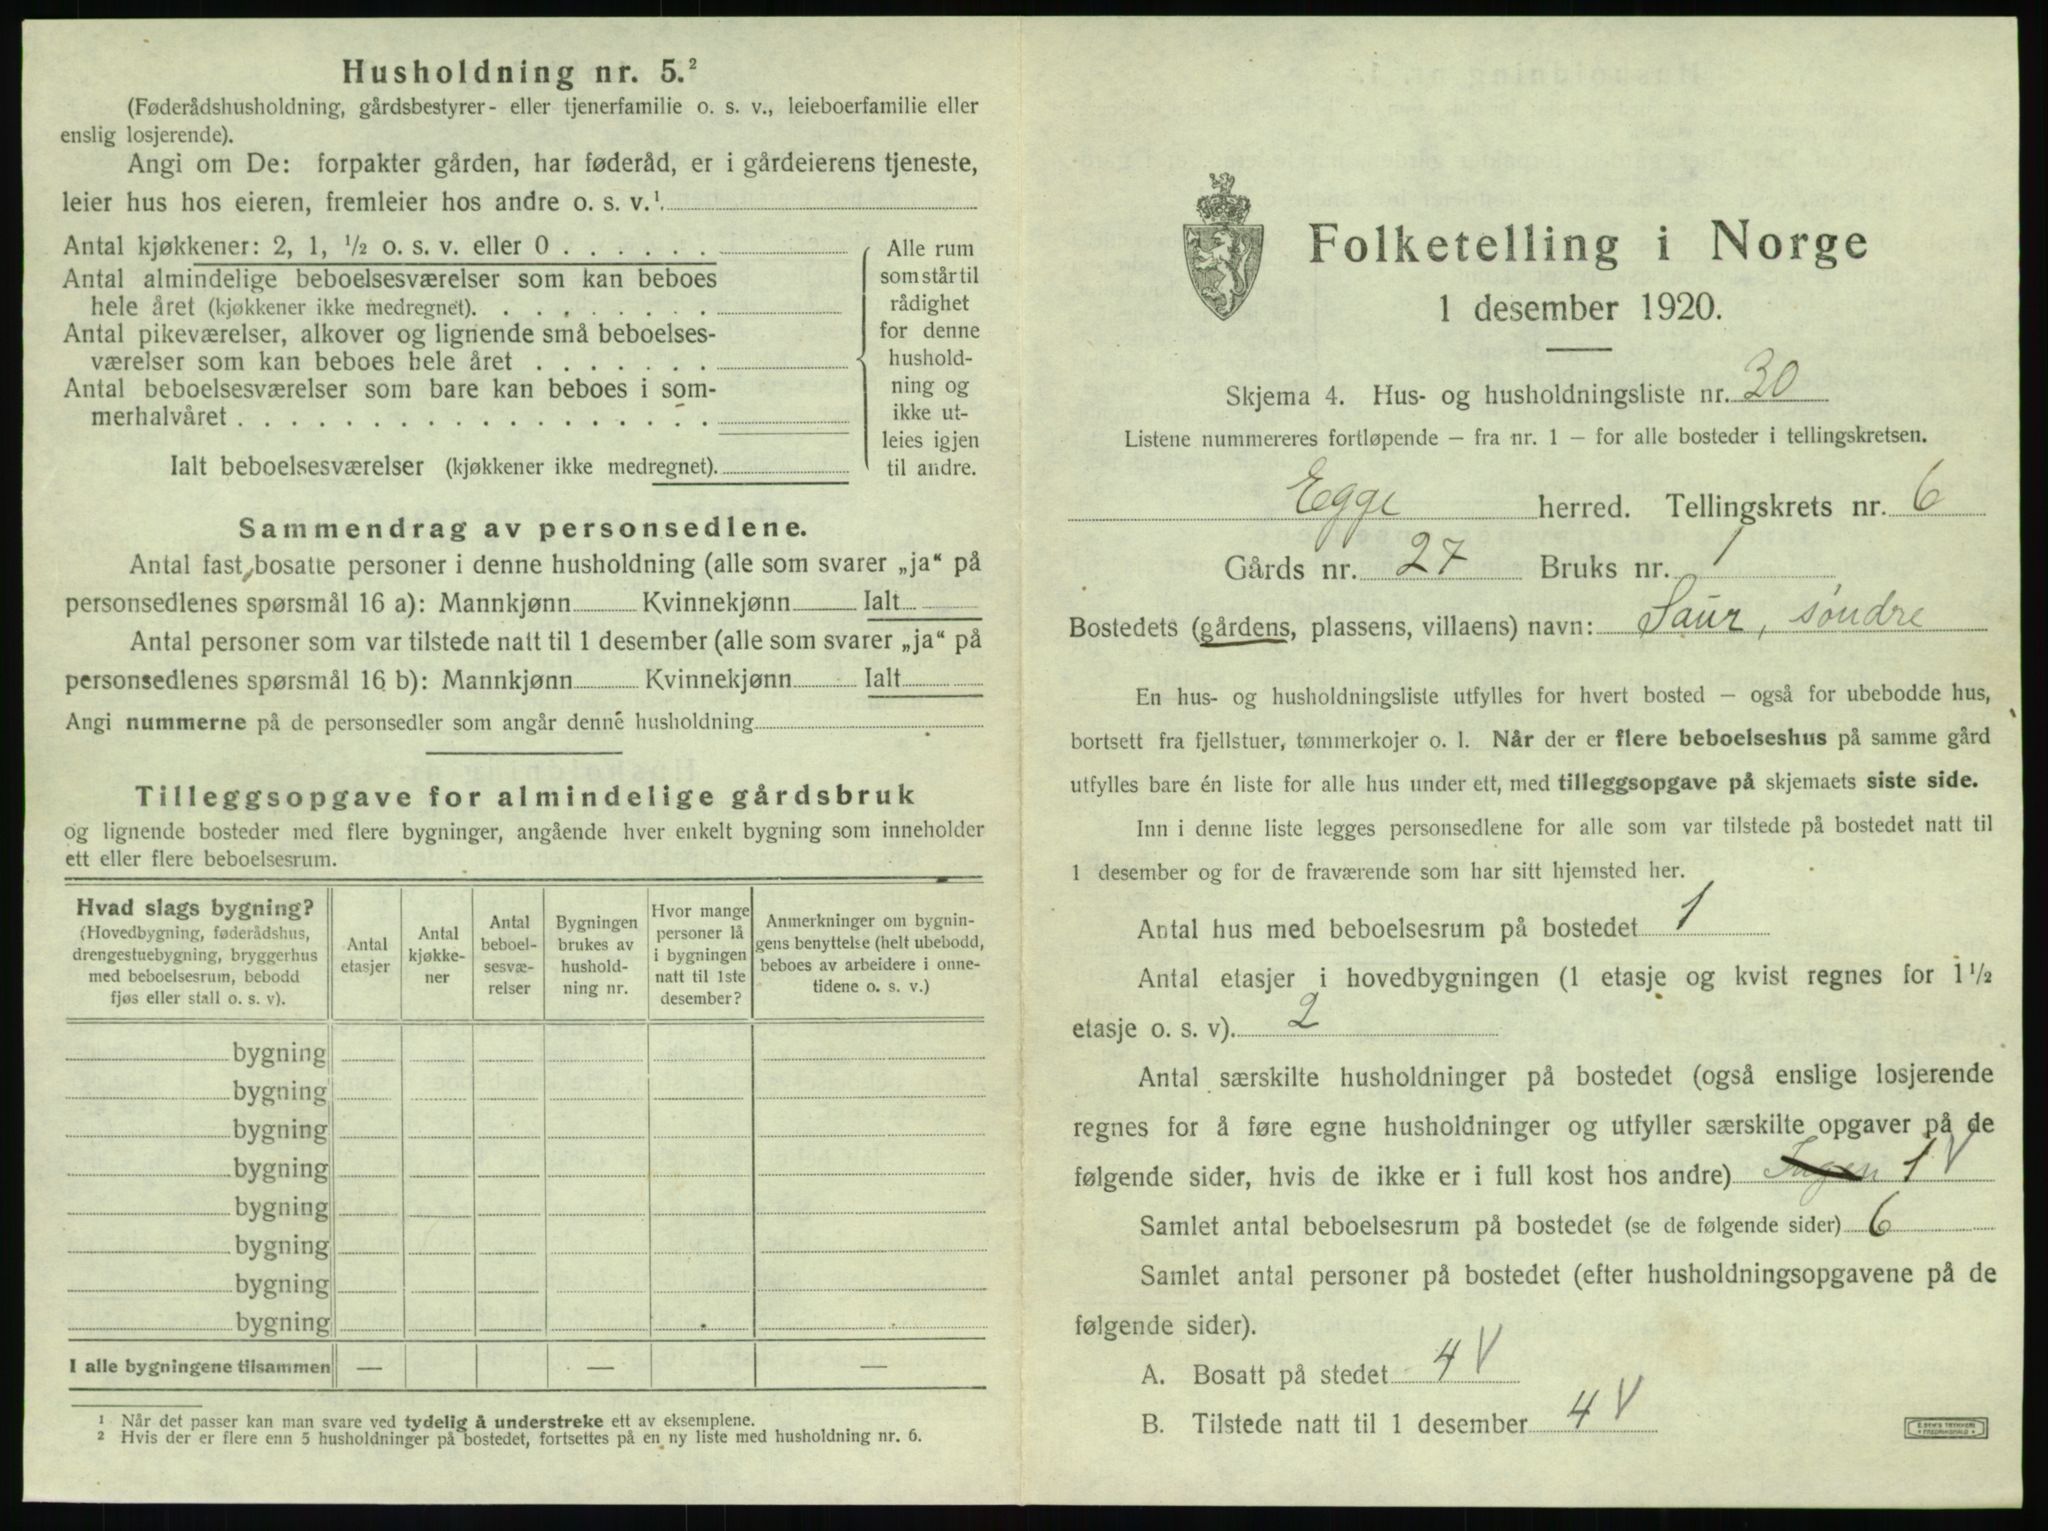 Husholdning nr. 5.²
(Føderådshusholdning, gårdsbestyrer- eller tjenerfamilie o. s. v., leieboerfamilie eller
enslig losjerende).
Angi om De: forpakter gården, har føderåd, er i gårdeierens tjeneste,
leier hus hos eieren, fremleier hos andre o. s. v.¹
Antal kjøkkener: 2, 1, ½ o. s. v. eller 0 . . . . . .
Antal almindelige beboelsesværelser som kan beboes
hele året (kjøkkener ikke medregnet). . . . . . . . .
Antal pikeværelser, alkover og lignende små beboelses-
værelser som kan beboes hele året . . . . . . .
Antal beboelsesværelser som bare kan beboes i som-
merhalvåret . . . . . . . . . . . . . . . . . .
Ialt beboelsesværelser (kjøkkener ikke medregnet).
Alle rum
som står til
rådighet
for denne
hushold-
ning og
ikke ut-
leies igjen
til andre.
Sammendrag av personsedlene.
Antal fast bosatte personer i denne husholdning (alle som svarer „ja“ på
personsedlenes spørsmål 16 a): Mannkjønn Kvinnekjønn Ialt
Antal personer som var tilstede natt til 1 desember (alle som svarer „ja“ på
personsedlenes spørsmål 16 b): Mannkjønn Kvinnekjønn Ialt
Angi nummerne på de personsedler som angår denne husholdning
Tilleggsopgave for almindelige gårdsbruk
og lignende bosteder med flere bygninger, angående hver enkelt bygning som inneholder
ett eller flere beboelsesrum.
Hvad slags bygning?
(Hovedbygning, føderådshus,
drengestuebygning, bryggerhus
med beboelsesrum, bebodd
fjøs eller stall o. s. v).
Antal
etasjer
Antal
kjøkke-
ner
Antal
beboel-
sesvæ-
relser
Bygningen
brukes av
hushold-
ning nr.
Hvor mange
personer lå
i bygningen
natt til 1ste
desember?
Anmerkninger om bygnin-
gens benyttelse (helt ubebodd,
beboes av arbeidere i onne-
tidene o. s. v.)
bygning
bygning
bygning
bygning
bygning
bygning
bygning
bygning
I alle bygningene tilsammen — — —
¹ Når det passer kan man svare ved tydelig å understreke ett av eksemplene.
² Hvis der er flere enn 5 husholdninger på bostedet, fortsettes på en ny liste med husholdning nr. 6.
Folketelling i Norge
1 desember 1920.
Skjema 4. Hus- og husholdningsliste nr. 30
Listene nummereres fortløpende – fra nr. 1 – for alle bosteder i tellingskretsen.
Egge herred. Tellingskrets nr. 6
Gårds nr. 27 Bruks nr. 1
Bostedets (gårdens, plassens, villaens) navn: Saur, søndre
En hus- og husholdningsliste utfylles for hvert bosted – også for ubebodde hus,
bortsett fra fjellstuer, tømmerkojer o. l. Når der er flere beboelseshus på samme gård
utfylles bare én liste for alle hus under ett, med tilleggsopgave på skjemaets siste side.
Inn i denne liste legges personsedlene for alle som var tilstede på bostedet natt til
1 desember og for de fraværende som har sitt hjemsted her.
Antal hus med beboelsesrum på bostedet 1
Antal etasjer i hovedbygningen (1 etasje og kvist regnes for 1½
etasje o. s. v). 2
Antal særskilte husholdninger på bostedet (også enslige losjerende
regnes for å føre egne husholdninger og utfyller særskilte opgaver på de
følgende sider, hvis de ikke er i full kost hos andre) Ingen 1 V
Samlet antal beboelsesrum på bostedet (se de følgende sider) 6
Samlet antal personer på bostedet (efter husholdningsopgavene på de
følgende sider).
A. Bosatt på stedet 4 V
B. Tilstede natt til 1 desember 4 V